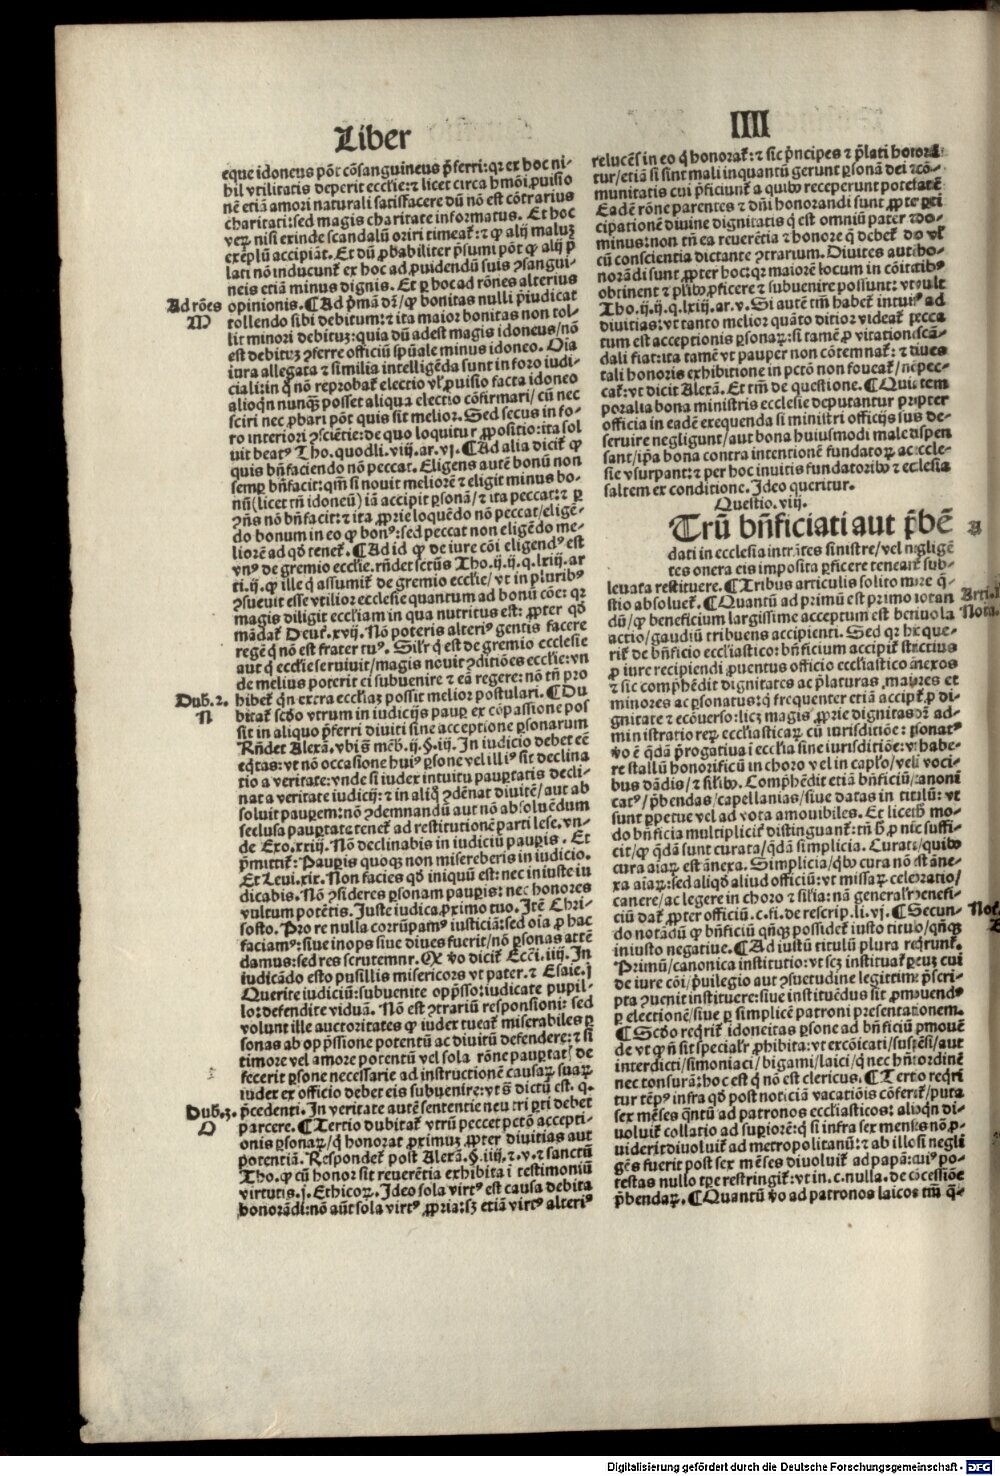 Liber
IIII
eque idoneus põt cõsanguineus p̃ferri: qꝛ ex hoc ni-
hil vtilitatis deperit ecclie: ⁊ licet circa hmõi ꝓuisio
nẽ etiã amori naturali satisfacere dũ nõ est cõtrarius
charitati: sed magis charitate informatus. Et hoc
veꝝ nisi exinde scandalũ oriri timeat̃: ⁊ ꝙ alij maluʒ
exẽplũ accipiãt. Et dũ ꝓbabiliter p̃sumi põt ꝙ alij p̃
lati nõ inducunt̃ ex hoc ad ꝓuidendũ suis ꝯsangui-
neis etiã minus dignis. Et ꝑ hoc ad rões alterius
Ad rões
M
opinionis. ¶Ad p̃mã dꝫ/ ꝙ bonitas nulli p̃iudicat
tollendo sibi debitum: ⁊ ita maior bonitas non tol-
lit minori debituʒ: quia dũ adest magis idoneus/ nõ
est debituʒ ꝯferre officiũ spũale minus idoneo. Oĩa
iura allegata ⁊ similia intelligẽda sunt in foro iudi-
ciali: in q̃ nõ reprobat̃ electio vl̃ ꝓuisio facta idoneo
alioqñ nunqꝫ̃ posset aliqua electio cõfirmari/ cũ nec
sciri nec ꝓbari põt quis sit melior. Sed secus in fo-
ro interiori ꝯsciẽtie: de quo loquitur ꝓpositio: ita sol
uit beatꝰ Tho. quodli. viij. ar. vj. ¶Ad alia dicit̃ ꝙ
quis bñfaciendo nõ peccat. Eligens autẽ bonũ non
semꝑ bñfacit: qm̃ si nouit meliorẽ ⁊ eligit minus bo-
nũ (licet tm̃ idoneũ) iã accipit ꝑsonã/ ⁊ ita peccat: ⁊ ꝑ
ꝯñs nõ bñfacit: ⁊ ita ꝓprie loquẽdo nõ peccat/ eligẽ-
do bonum in eo ꝙ bonꝰ: sed peccat non eligẽdo me-
liorẽ ad qđ tenet̃. ¶Ad id ꝙ de iure cõi eligendꝰ est
vnꝰ de gremio ecclie. rñdet sctũs Tho. ij. ij. q. lxiij. ar
ti. ij. ꝙ ille q̃ assumit̃ de gremio ecclie/ vt in pluribꝰ
ꝯsueuit esse vtilior ecclesie quantum ad bonũ cõe: qꝛ
magis diligit eccliam in qua nutritus est: ꝓpter qđ
mãdat̃ Deut̃. xvij. Nõ poteris alteriꝰ gentis facere
regẽ q̃ nõ est frater tuꝰ. Sil̃r q̃ est de gremio ecclesie
aut q̃ ecclie seruiuit/ magis nouit ꝯditiões ecclie: vn
de melius poterit ei subuenire ⁊ eã regere: nõ tñ pro
Dub. 2.
N
hibet̃ qñ extra ecclĩaʒ possit melior postulari. ¶Du
bitat̃ scđo vtrum in iudicijs pauꝑ ex cõpassione pos
sit in aliquo p̃ferri diuiti sine acceptione ꝑsonarum
Rñdet Alexã. vbi s̃ mẽb. ij. §. iij. In iudicio debet eẽ
eq̃tas: vt nõ occasione huiꝰ ꝑsone vel illiꝰ sit declina
tio a veritate: vnde si iudex intuitu pauꝑtatis decli-
nat a veritate iudicij: ⁊ in aliq̃ ꝯdẽnat diuitẽ/ aut ab
soluit pauꝑem: nõ ꝯdemnandũ aut nõ absoluẽdum
seclusa pauꝑtate tenet̃ ad restitutionẽ parti lese. vn-
de Exo. xxiij. Nõ declinabis in iudiciũ pauꝑis. Et
p̃mittit̃: Pauꝑis quoqꝫ non misereberis in iudicio.
Et Leui. xix. Non facies qđ iniquũ est: nec iniuste iu
dicabis. Nõ ꝯsideres ꝑsonam pauꝑis: nec honores
vultum potẽtis. Iuste iudica ꝓximo tuo. Itẽ Chri-
sosto. Pro re nulla corrũpamꝰ iusticiã: sed oĩa ꝓ hac
faciamꝰ: siue inops siue diues fuerit/ nõ ꝑsonas attẽ
damus: sed res scrutemur. Qꝫ v̇o dicit̃ Ecci. iiij. In
iudicãdo esto pusillis misericors vt pater. ⁊ Esaie. j
Querite iudiciũ: subuenite opp̃sso: iudicate pupil-
lo: defendite viduã. Nõ est ꝯtrariũ responsioni: sed
volunt ille auctoritates ꝙ iudex tueat̃ miserabiles ꝑ
sonas ab opp̃ssione potentũ ac diuitũ defendere: ⁊ si
timore vel amore potentũ vel sola rõne pauꝑtatꝭ de
fecerit ꝑsone necessarie ad instructionẽ causaꝝ suaꝝ
iudex ex officio debet eis subuenire: vt s̃ dictũ est. q.
Dub. 3.
O
p̃cedenti. In veritate autẽ sententie neutri ꝑti debet
parcere. ¶Tertio dubitat̃ vtrũ peccet pctõ accepti-
onis ꝑsonaꝝ/ q̃ honorat ꝓximuʒ ꝓpter diuitias aut
potentiã. Respondet̃ post Alexã. §. iiij. ⁊. v. ⁊ sanctũ
Tho. ꝙ cũ honor sit reuerẽtia exhibita ĩ testimoniũ
virtutis. j. Ethicoꝝ. Ideo sola virtꝰ est causa debita
honorãdi: nõ aũt sola virtꝰ ꝓpria: sʒ etiã virtꝰ alteriꝰ
relucẽs in eo q̃ honorat̃: ⁊ sic p̃ncipes ⁊ p̃lati honora
tur/ etiã si sint mali inquantũ gerunt ꝑsonã dei ⁊ cõ-
munitatis cui p̃ficiunt̃ a quibꝰ receperunt potestatẽ
Eadẽ rõne parentes ⁊ dñi honorandi sunt ꝓpter ꝑti
cipationẽ diuine dignitatis q̃ est omniũ pater ⁊ do-
minus: non tñ ea reuerẽtia ⁊ honore q̃ debet̃ deo vl̃
cũ conscientia dictante ꝯtrarium. Diuites autẽ ho-
norãdi sunt ꝓpter hoc: qꝛ maiorẽ locum in cõitatibꝰ
obtinent ⁊ plibꝰ ꝓficere ⁊ subuenire possunt: vt vult
Tho. ij. ij. q. lxiij. ar. v. Si autẽ tm̃ habet̃ intuitꝰ ad
diuitias: vt tanto melior quãto ditior videat̃ pecca
tum est acceptionis ꝑsonaꝝ: si tamẽ ꝓ vitatione scã-
dali fiat: ita tamẽ vt pauper non cõtemnat̃: ⁊ diues
tali honoris exhibitione in pctõ non foueat̃/ nẽ pec-
cat̃: vt dicit Alexã. Et tm̃ de questione. ¶Quia tem
poralia bona ministris ecclesie deputantur propter
officia in eadẽ exequenda si ministri officijs suis de-
seruire negligunt/ aut bona huiusmodi male dispen
sant/ ip̃a bona contra intentionẽ fundatoꝝ ac eccle-
sie vsurpant: ⁊ per hoc inuitis fundatoribꝰ ⁊ ecclesia
saltem ex conditione. Ideo queritur.
Questio. viij.
Trũ bñficiati aut p̃bẽ
A
dati in ecclesia intrãtes sinistre/ vel negligẽ
tes onera eis imposita ꝑficere teneant̃ sub-
leuata restituere. ¶Tribus articulis solito more q̃-
Arti. I
Nota.
stio absoluet̃. ¶Quantũ ad primũ est primo notan
dũ/ ꝙ beneficium largissime acceptum est beniuola
actio/ gaudiũ tribuens accipienti. Sed qꝛ hic que-
rit̃ de bñficio ecclĩastico: bñficium accipit̃ strictius
ꝓ iure recipiendi ꝓuentus officio ecclĩastico ãnexos
⁊ sic comp̃hẽdit dignitates ac p̃laturas maiores et
minores ac ꝑsonatus: q̃ frequenter etiã accipit̃ ꝓ di-
gnitate ⁊ ecõuerso: licʒ magis ꝓprie dignitas dꝫ ad-
ministratio reꝝ ecclĩasticaꝝ cũ iurisditiõe: ꝑsonatꝰ
v̇o ẽ q̃dã p̃rogatiua ĩ ecclia sine iurisditiõe: vt habe-
re stallũ honorificũ in choro vel in capl̃o/ vel ĩ voci-
bus dãdis/ ⁊ sil̃ibꝰ. Comp̃hẽdit etiã bñficiũ/ canoni
catꝰ/ p̃bendas/ capellanias/ siue datas in titulũ: vt
sunt ꝑpetue vel ad vota amouibiles. Et licet h̊ mo-
do bñficia multiplicit̃ distinguant̃: tm̃ h̊ ꝓ nũc suffi-
cit/ ꝙ q̃dã sunt curata/ q̃dã simplicia. Curata/ quibꝰ
cura aĩaꝝ est ãnexa. Simplicia/ q̃bꝰ cura nõ est ãne-
xa aĩaꝝ: sed aliqđ aliud officiũ: vt missaꝝ celebratio/
canere/ ac legere in choro ⁊ sil̃ia: nã general̃r benefi-
Not.
ciũ dat̃ ꝓpter officiũ. c. fi. de rescrip. li. vj. ¶Secun-
do notãdũ ꝙ bñficiũ qñqꝫ possidet̃ iusto titulo/ qñqꝫ
iniusto negatiue. ¶Ad iustũ titulũ plura req̃runt̃.
Primũ/ canonica institutio: vt scʒ instituat̃ ꝑ eum cui
de iure cõi/ p̃uilegio aut ꝯsuetudine legittime p̃scri-
pta ꝯuenit instituere: siue instituẽdus sit ꝓmouendꝰ
ꝑ electionẽ/ siue ꝑ simplicẽ patroni presentationem.
¶Scđo req̃rit̃ idoneitas ꝑsone ad bñficiũ ꝓmouẽ
de vt ꝙ ñ sit special̃r ꝓhibita: vt excõicati/ suspẽsi/ aut
interdicti/ simoniaci/ bigami/ laici/ q̃ nec hñt ordinẽ
nec tonsurã: hoc est q̃ nõ est clericus. ¶Tertio req̃ri
tur tẽpꝰ infra qđ post noticiã vacatiõis cõferit̃/ puta
sex mẽses q̃ntũ ad patronos ecclĩasticos: alioqñ di-
uoluit̃ collatio ad suꝑiorẽ: q̃ si infra sex menses nõ ꝓ-
uiderit diuoluit̃ ad metropolitanũ: ⁊ ab illo si negli
gẽs fuerit post sex mẽses diuoluit̃ ad papã: cuiꝰ po-
testas nullo tꝑe restringit̃: vt in. c. nulla. de cõcessiõe
p̃bendaꝝ. ¶Quantũ v̇o ad patronos laicos tm̃ q̃-
Digitalisierung gefördert durch die Deutsche Forschungsgemeinschaft - DFG